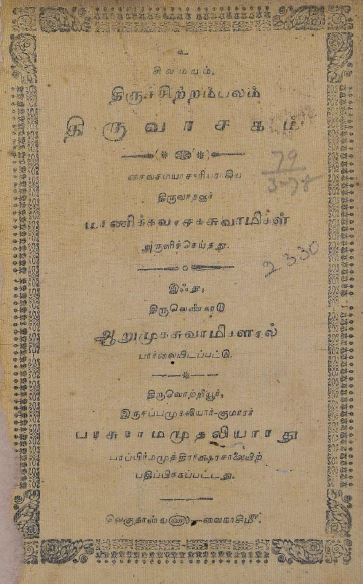 உ
சிவமயம்.
திருச்சிற்றம்பலம்
திருவாசகம்.
79
3-78
சைவசமயாசாரியராகிய
திருவாதவூர்
மாணிக்கவாசகசுவாமிகள்
அருளிச்செய்தது.
2330
இஃது,
திருவெண்காடு
ஆறுமுகசுவாமிகளால்
பார்வையிடப்பட்டு.
திருவொற்றியூர்,
இருசப்பமுதலியார்-குமாரர்
பரசுராமமுதலியாரது
பதிப்பிக்கப்பட்டது.
வெகுதானிய வைகாசிமீ